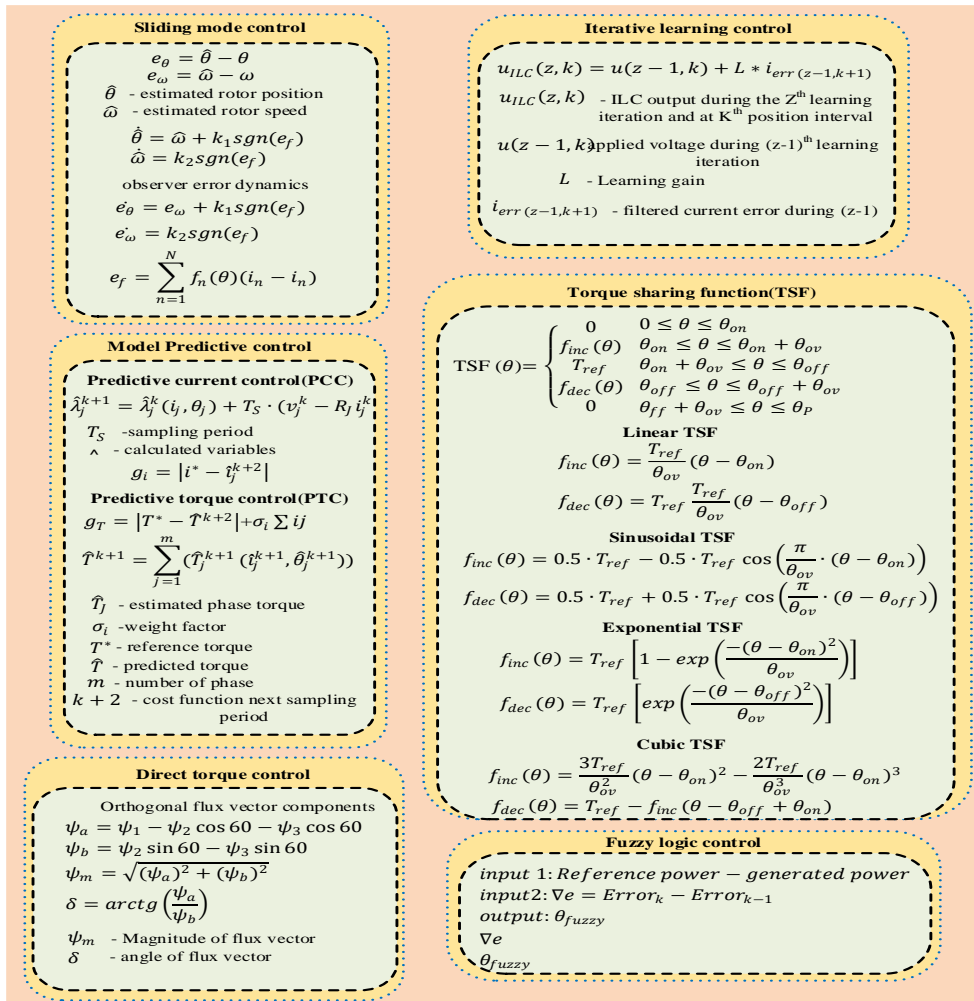 Sliding mode control
e_θ = θ̂ − θ
e_ω = ω̂ − ω
θ̂ - estimated rotor position
ω̂ - estimated rotor speed
θ̂̇ = ω̂ + k₁sgn(e_f)
ω̂̇ = k₂sgn(e_f)
observer error dynamics
ė_θ = e_ω + k₁sgn(e_f)
ė_ω = k₂sgn(e_f)
e_f = ∑_{n=1}^{N} f_n(θ)(i_n − i_n)
Model Predictive control
Predictive current control(PCC)
λ̂_j^{k+1} = λ̂_j^k(i_j, θ_j) + T_S · (v_j^k − R_J i_j^k
T_S -sampling period
^ - calculated variables
g_i = |i* − î_j^{k+2}|
Predictive torque control(PTC)
g_T = |T* − T̂^{k+2}|+σ_i ∑ ij
T̂^{k+1} = ∑_{j=1}^{m}(T̂_j^{k+1} (î_j^{k+1}, θ̂_j^{k+1}))
T̂_J - estimated phase torque
σ_i -weight factor
T* - reference torque
T̂ - predicted torque
m - number of phase
k + 2 - cost function next sampling
period
Direct torque control
Orthogonal flux vector components
ψ_a = ψ₁ − ψ₂ cos 60 − ψ₃ cos 60
ψ_b = ψ₂ sin 60 − ψ₃ sin 60
ψ_m = √((ψ_a)² + (ψ_b)²)
δ = arctg(ψ_a/ψ_b)
ψ_m - Magnitude of flux vector
δ - angle of flux vector
Iterative learning control
u_{ILC}(z, k) = u(z − 1, k) + L * i_{err (z−1,k+1)}
u_{ILC}(z, k) - ILC output during the Z^{th} learning
iteration and at K^{th} position interval
u(z − 1, k) applied voltage during (z-1)^{th} learning
iteration
L - Learning gain
i_{err (z−1,k+1)} - filtered current error during (z-1)
Torque sharing function(TSF)
TSF (θ)= {
0 0 ≤ θ ≤ θ_{on}
f_{inc}(θ) θ_{on} ≤ θ ≤ θ_{on} + θ_{ov}
T_{ref} θ_{on} + θ_{ov} ≤ θ ≤ θ_{off}
f_{dec}(θ) θ_{off} ≤ θ ≤ θ_{off} + θ_{ov}
0 θ_{ff} + θ_{ov} ≤ θ ≤ θ_P
Linear TSF
f_{inc}(θ) = T_{ref}/θ_{ov} (θ − θ_{on})
f_{dec}(θ) = T_{ref} T_{ref}/θ_{ov} (θ − θ_{off})
Sinusoidal TSF
f_{inc}(θ) = 0.5 · T_{ref} − 0.5 · T_{ref} cos(π/θ_{ov} · (θ − θ_{on}))
f_{dec}(θ) = 0.5 · T_{ref} + 0.5 · T_{ref} cos(π/θ_{ov} · (θ − θ_{off}))
Exponential TSF
f_{inc}(θ) = T_{ref} [1 − exp(−(θ − θ_{on})²/θ_{ov})]
f_{dec}(θ) = T_{ref} [exp(−(θ − θ_{off})²/θ_{ov})]
Cubic TSF
f_{inc}(θ) = 3T_{ref}/θ_{ov}² (θ − θ_{on})² − 2T_{ref}/θ_{ov}³ (θ − θ_{on})³
f_{dec}(θ) = T_{ref} − f_{inc}(θ − θ_{off} + θ_{on})
Fuzzy logic control
input 1: Reference power − generated power
input2: ∇e = Error_k − Error_{k−1}
output: θ_{fuzzy}
∇e
θ_{fuzzy}